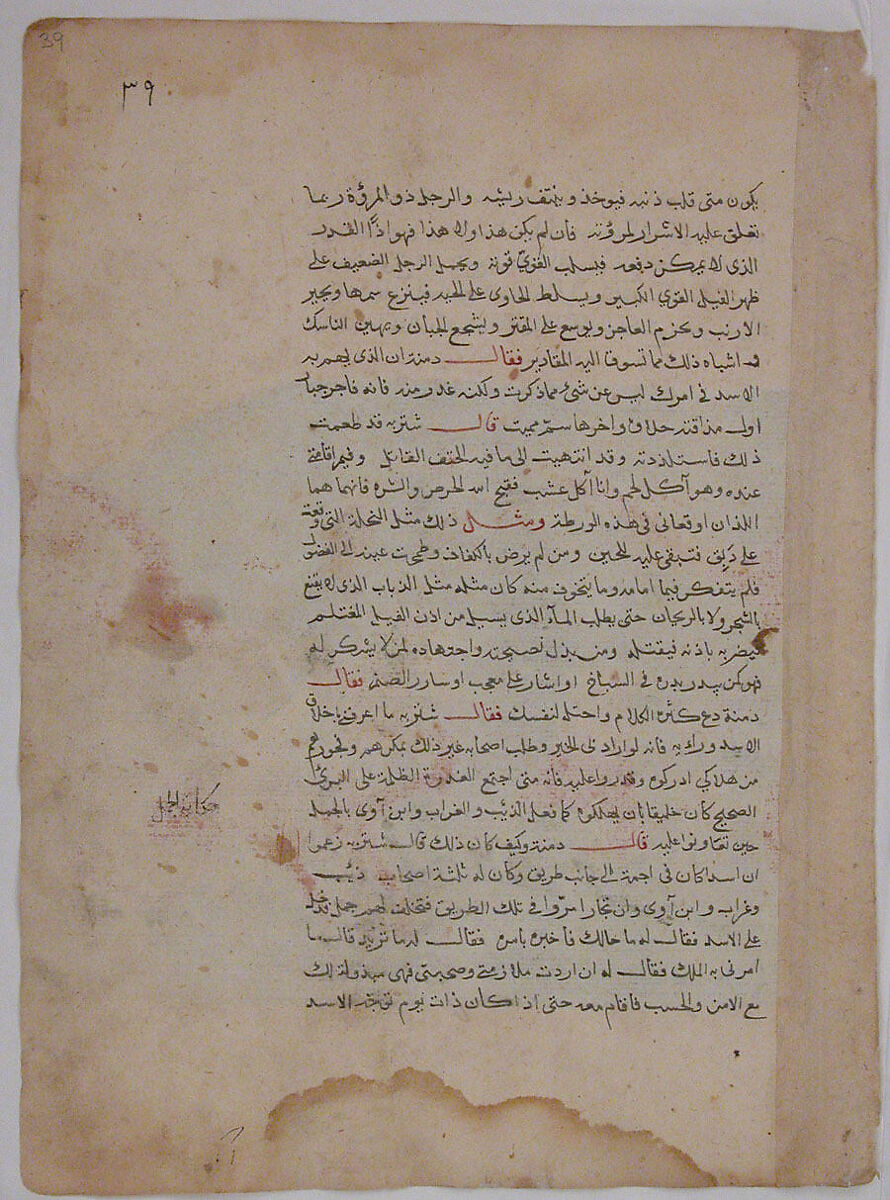 39
٣٩
يكون متى قلب ذنبه فيوخذ وينتف ريشه والرجل ذو المروة ربما
تعلق عليه الاشرار لمروته فان لم يكن هذا ولا هذا فهو اذًا القدر
الذى لا يمكن دفعه فيسلب القوىّ قوته ويحمل الرجل الضعيف على
ظهر الفيل القوي الكبير ويسلط الحاوى على الحيه فينزع سمها ويجير
الارنب ويحزم العاجز ويوسع على المقتر ويشجع الجبان ويهين الناسك
واشباه ذلك مما تسوقا اليه المقادير فقال دمنة ان الذى يهم به
الاسد فى امرك ليس عن شئ مما ذكرت ولكنه غدر منه فانه فاجر جبار
اول مذاقته حلاوة واخرها سمّ مميت قال شتربه قد طعمت
ذلك فاستلذذته وقد انتهيت الى ما فيه الحتف القاتل وفيم اقامتى
عنده وهو آكل لحم وانا آكل عشب فقبح الله الحرص والشره فانهما هما
اللذان اوقعانى فى هذه الورطة ومثل ذلك مثل النحلة التى وقعت
على فتبقى عليه للحين ومن لم يرض بالكفاف وطمحت عينه الى الفضول
فلم يتفكر فيما امامه وما يتخوف منه كان مثله مثل الذباب الذى لا يقنع
بالشجر ولا بالريحان حتى يطلب المآء الذى يسيل من اذن الفيل المغتلم
فيضربه باذنه فيقتله ومن بذل نصيحته واجتهاده لمن لا يشكر له
فهو كمن بذره فى السباخ او اشار على معجب او سارر الصم فقال
دمنة دع كثرة الكلام واحتله لنفسك فقال شتربه ما اعرفنى باخلاق
الاسد ورايه فانه لو اراد لى الخير وطلب اصحابه غير ذلك بمكرهم وفجورهم
من هلاكى ادركوه وقدروا عليه فانه متى اجتمع الغدرة الظلمة على البرئ
الصحيح كان خليقا بان يهلكوه كما فعل الذئب والغراب وابن آوى بالجمل
حين تعاونوا عليه قال دمنة وكيف كان ذلك قال شتربه زعموا
ان اسدا كان فى اجمة الى جانب طريق وكان له ثلثة اصحاب ذئب
وغراب وابن آوى وان تجارا مرّوا فى تلك الطريق فتخلف لهم جمل فدخل
على الاسد فقال له ما حالك فاخبره بامره فقال له ما تريد قال ما
امرنى به الملك فقال له ان اردت ملازمتى وصحبتى فهى مبذولة لك
مع الامن والخصب فاقام معه حتى اذا كان ذات يوم توجه الاسد
حكاية الجمل